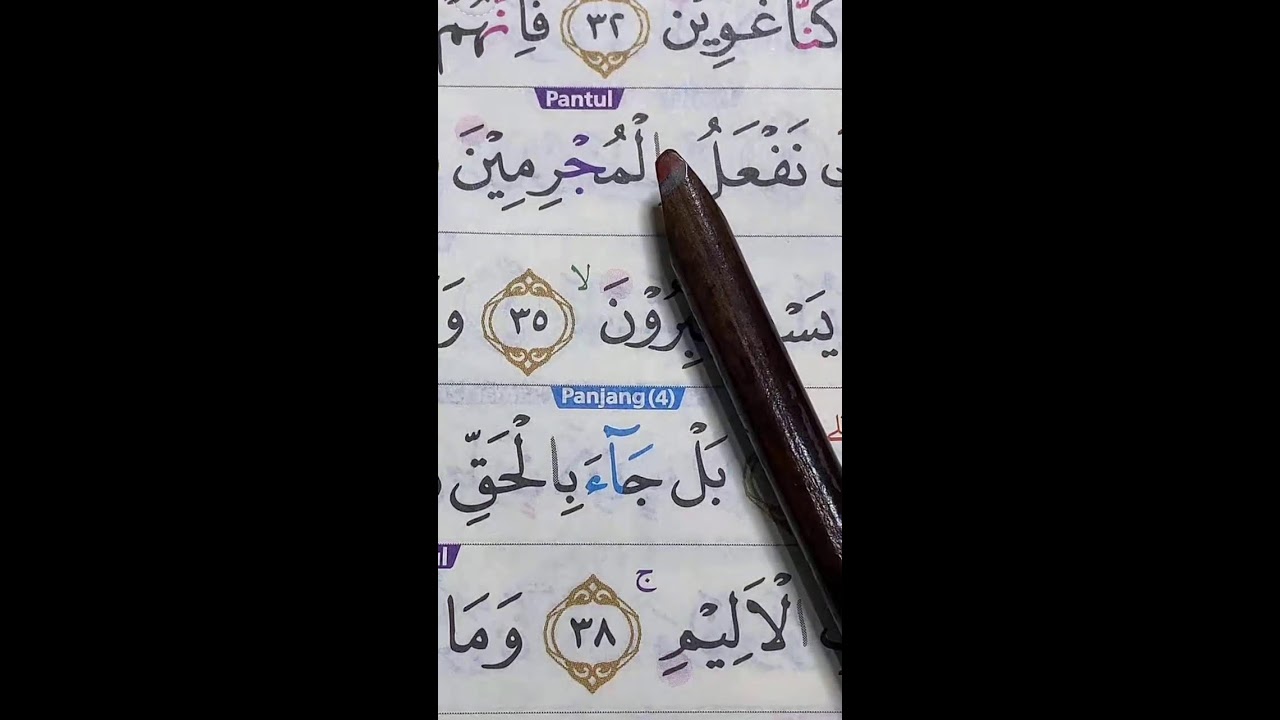 كُنَّا غٰوِيْنَ ٣٢ فَاِنَّهُمْ
Pantul
نَفْعَلُ بِالْمُجْرِمِيْنَ
لا
٣٥ وَ
Panjang (4)
بَلْ جَاۤءَ بِالْحَقِّ
ج
الْاَلِيْمِ ٣٨ وَمَا